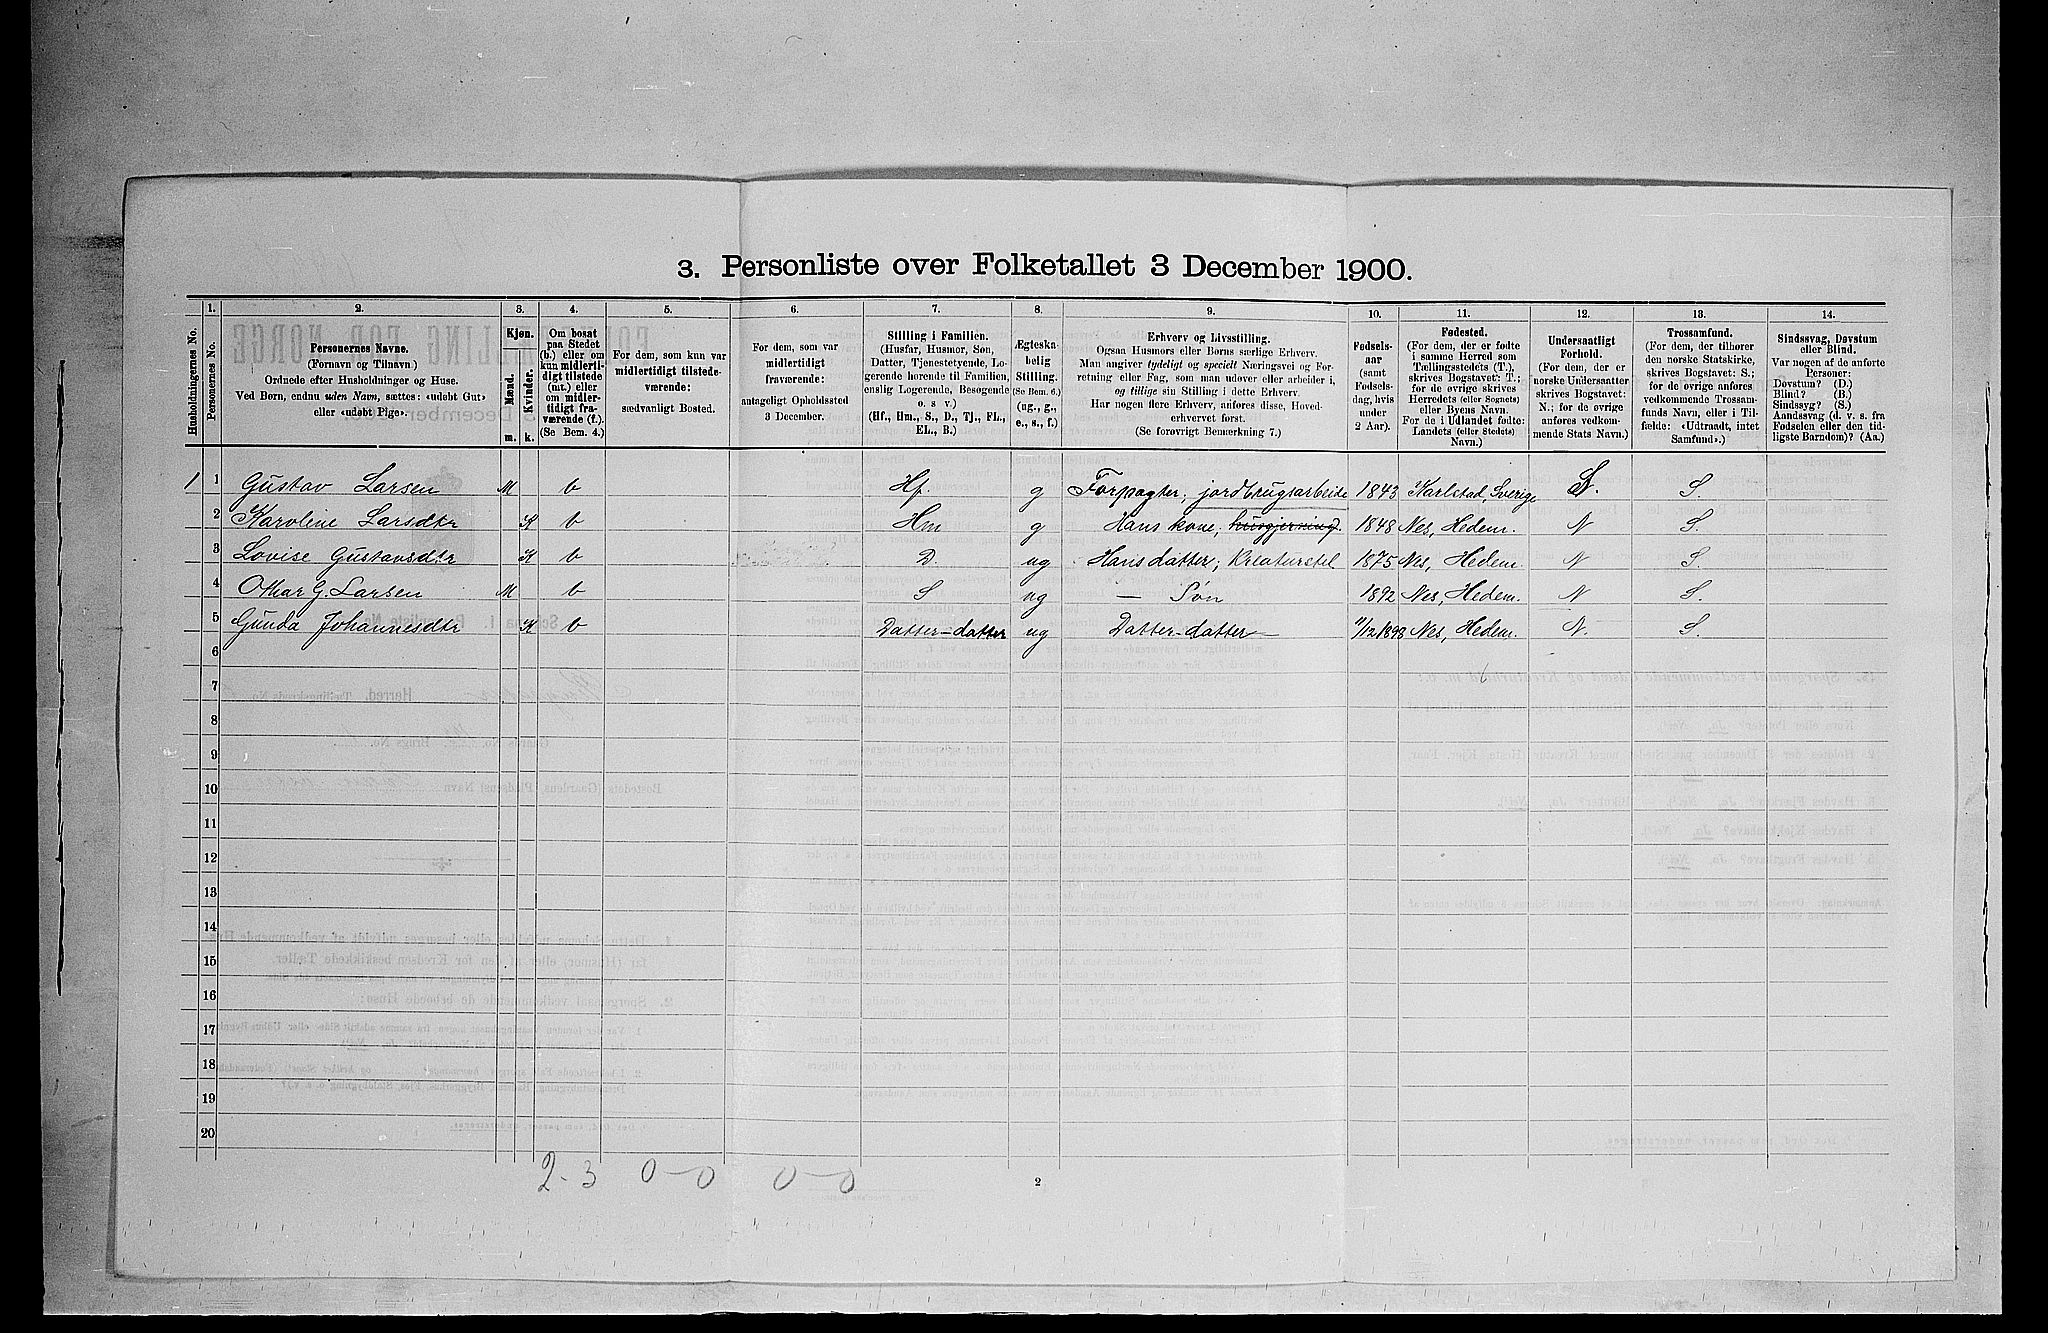 3. Personliste over Folketallet 3 December 1900.
Husholdningernes No.
1.
Personernes No.
2.
Personernes Navne.
(Fornavn og Tilnavn.)
Ordnede efter Husholdninger og Huse.
Ved Børn, endnu uden Navn, sættes: «udøbt Gut»
eller «udøbt Pige».
3.
Kjøn.
Mænd.
Kvinder.
m.
k.
4.
Om bosat
paa Stedet
(b.) eller om
kun midlerti-
digt tilstede
(mt.) eller
om midler-
tidigt fra-
værende (f.).
(Se Bem. 4.)
5.
For dem, som kun var
midlertidigt tilstede-
værende:
sædvanligt Bosted.
6.
For dem, som var
midlertidigt
fraværende:
antageligt Opholdssted
3 December.
7.
Stilling i Familien.
(Husfar, Husmor, Søn,
Datter, Tjenestetyende, Lo-
gerende hørende til Familien,
enslig Logerende, Besøgende
o. s. v.)
(Hf., Hm., S., D., Tj., FL.,
EL., B.)
8.
Ægteska-
belig
Stilling.
(Se Bem. 6.)
(ug., g.,
e., s., f.)
9.
Erhverv og Livsstilling.
Ogsaa Husmors eller Børns særlige Erhverv.
Man angiver tydeligt og specielt Næringsvei og For-
retning eller Fag, som man udøver eller arbeider i,
og tillige sin Stilling i dette Erhverv.
Har nogen flere Erhverv, anføres disse, Hoved-
erhvervet først.
(Se forøvrigt Bemerkning 7.)
10.
Fødsels-
aar
(samt
Fødsels-
dag, hvis
under
2 Aar).
11.
Fødested.
(For dem, der er fødte
i samme Herred som
Tællingsstedets (T.),
skrives Bogstavet: T.;
for de øvrige skrives
Herredets (eller Sognets)
eller Byens Navn.
For de i Udlandet fødte:
Landets (eller Stedets)
Navn.)
12.
Undersaatligt
Forhold.
(For dem, der er
norske Undersaatter
skrives Bogstavet:
N.; for de øvrige
anføres vedkom-
mende Stats Navn.)
13.
Trossamfund.
(For dem, der tilhører
den norske Statskirke,
skrives Bogstavet: S.;
for de øvrige anføres
vedkommende Trossam-
funds Navn, eller i Til-
fælde: «Udtraadt, intet
Samfund».)
14.
Sindssvag, Døvstum
eller Blind.
Var nogen af de anførte
Personer:
Døvstum? (D.)
Blind? (B.)
Sindssyg? (S.)
Aandssvag (d. v. s. fra
Fødselen eller den tid-
ligste Barndom)? (Aa.)
1 1 Gustav Larsen M b Hf. g Forpagter, jordbrugsarbeide 1843 Karlstad, Sverige N. S.
2 Karoline Larsdtr K b Hm g Hans kone, husgjerning. 1848 Nes, Hedem. N S.
3 Lovise Gustavsdtr K b D. ug Hans datter, Kreaturstel 1875 Nes, Hedem. N S.
4 Othar G. Larsen M b S ug — Søn 1892 Nes, Hedem. N S.
5 Gunda Johannesdtr K b Datter-datter ug Datter-datter 1898 Nes, Hedem. N. S.
6
7
8
9
10
11
12
13
14
15
16
17
18
19
20
2-3 0-0 0-0
2